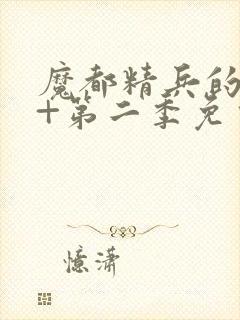 魔都精兵的
+第二季免
憶瀟